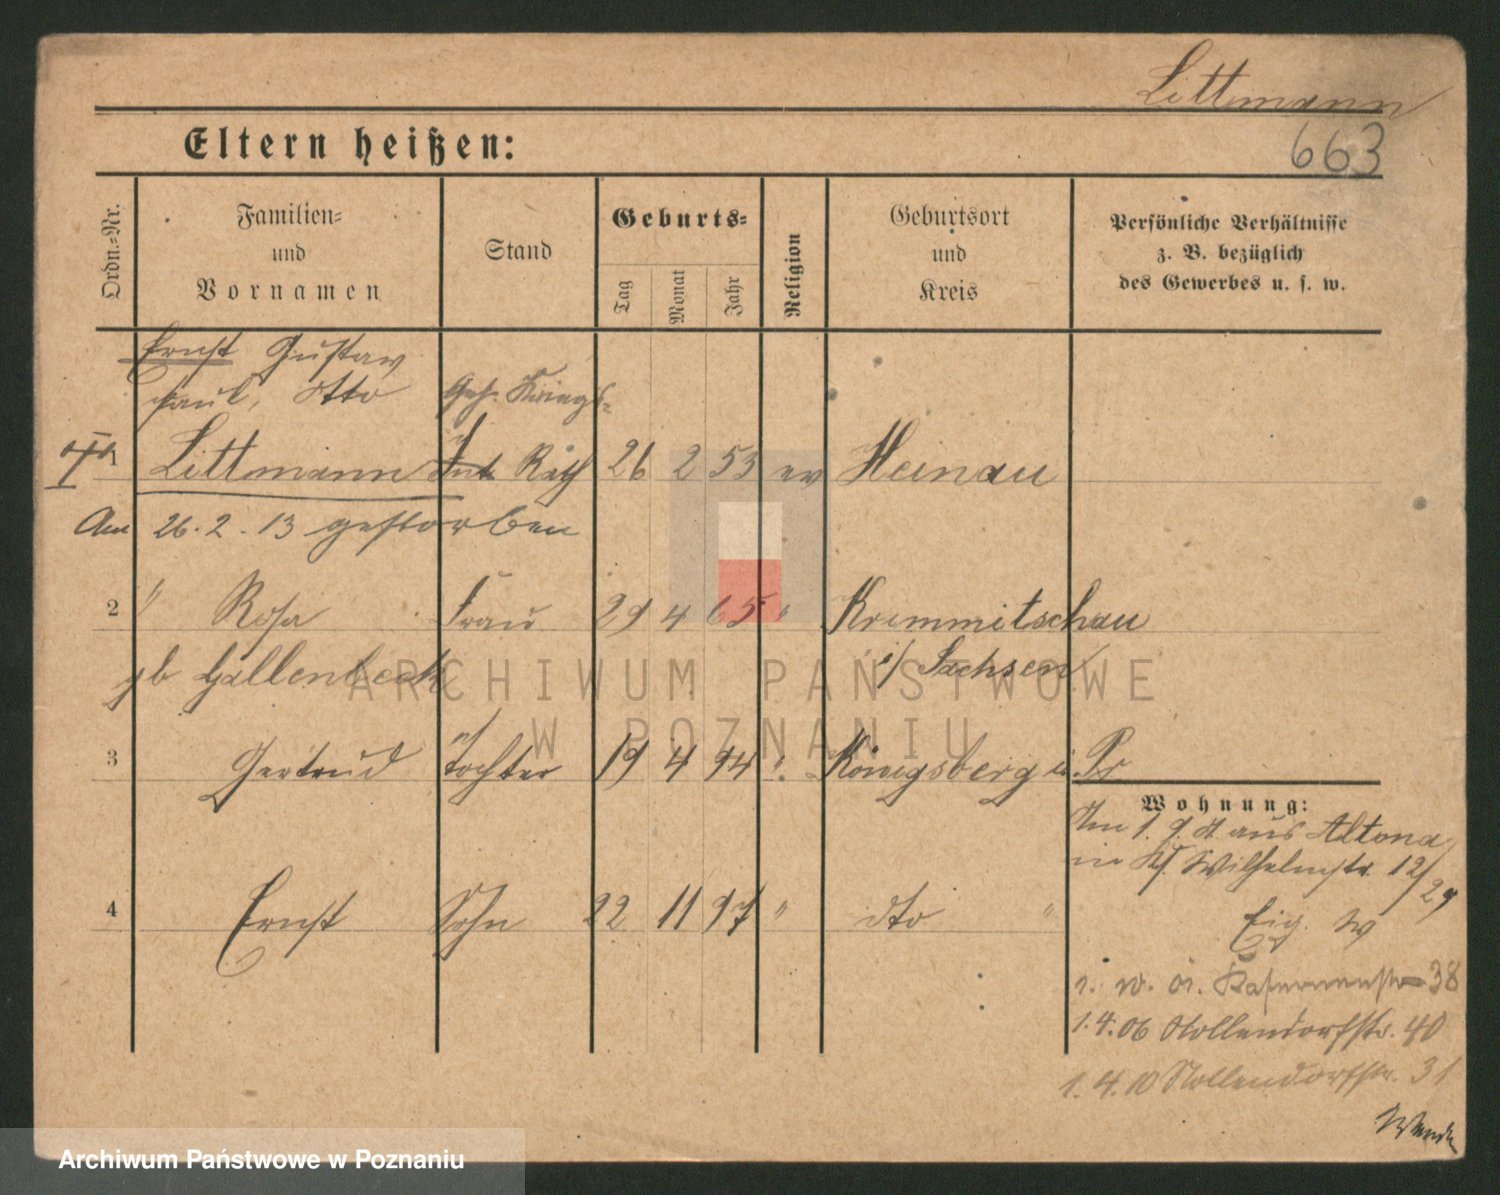 Littmann
663
Eltern heißen:
Ordn.=Nr.
Familien=
und
Vornamen
Stand
Geburts=
Tag
Monat
Jahr
Religion
Geburtsort
und
Kreis
Persönliche Verhältnisse
z. B. bezüglich
des Gewerbes u. s. w.
Ernst Gustav
Paul, Otto Geh. Kriegs=
1 Littmann Rath 26 2 53 ev Heinau
Am 26. 2. 13 gestorben
2 " Rosa Frau 29 4 65 " Krimmitschau
gb Gallenbeck i/ Sachsen
3 Gertrud Tochter 19 4 94 " Königsberg i Pr
Wohnung:
Am 1. 9. aus Altona
in Wilhelmstr. 12/
29
4 Ernst Sohn 22 11 97 " dto "
Eig. W
Kasernenstr 38
1.4.06 Nollendorfstr. 40
1.4.10 Nollendorfstr. 31
Wende
ARCHIWUM PAŃSTWOWE
W POZNANIU
Archiwum Państwowe w Poznaniu